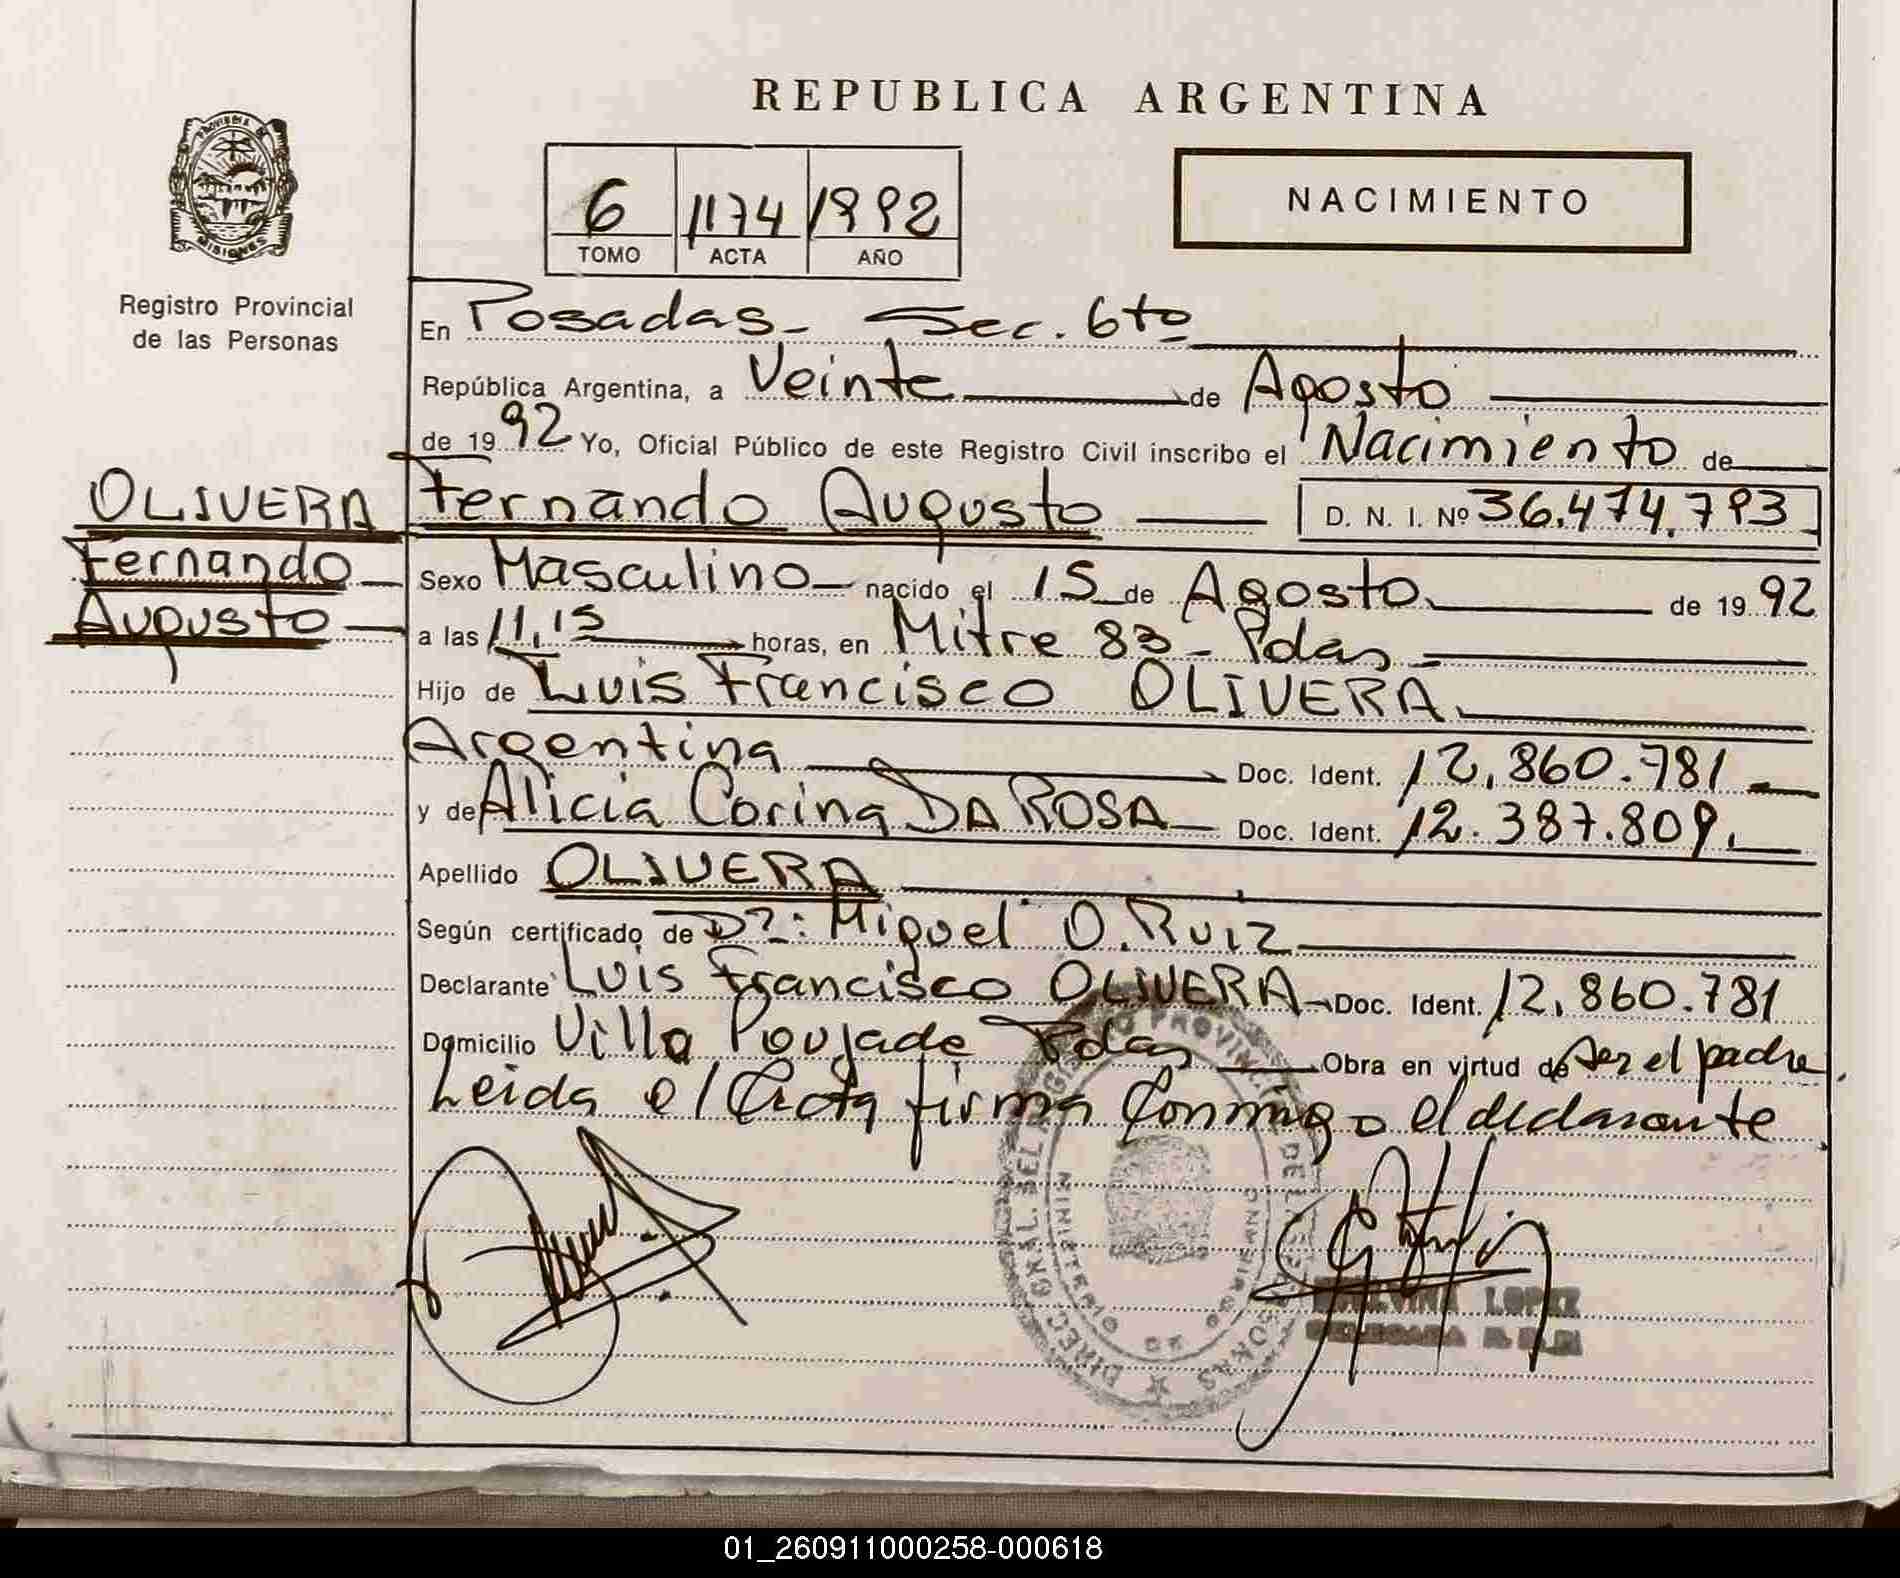 REPUBLICA ARGENTINA
PROVINCIA DE
MISIONES
Registro Provincial
de las Personas
6 1174 1992
TOMO ACTA AÑO
NACIMIENTO
En Posadas - Sec. 6to
República Argentina, a Veinte de Agosto
de 1992 Yo, Oficial Público de este Registro Civil inscribo el Nacimiento de
OLIVERA
Fernando
Augusto
Fernando Augusto D. N. I. Nº 36.474.793
Sexo Masculino nacido el 15 de Agosto de 1992
a las 11,15 horas, en Mitre 83 - Pdas
Hijo de Luis Francisco OLIVERA
Argentina Doc. Ident. 12,860.781
y de Alicia Corina DA ROSA Doc. Ident. 12.387.809
Apellido OLIVERA
Según certificado de Dr: Miguel O. Ruiz
Declarante Luis Francisco OLIVERA Doc. Ident. 12,860.781
Domicilio Villa Poujade Pdas Obra en virtud de ser el padre.
Leida el Acta firma conmigo el declarante
LOPEZ
DELEGADA
01_260911000258-000618